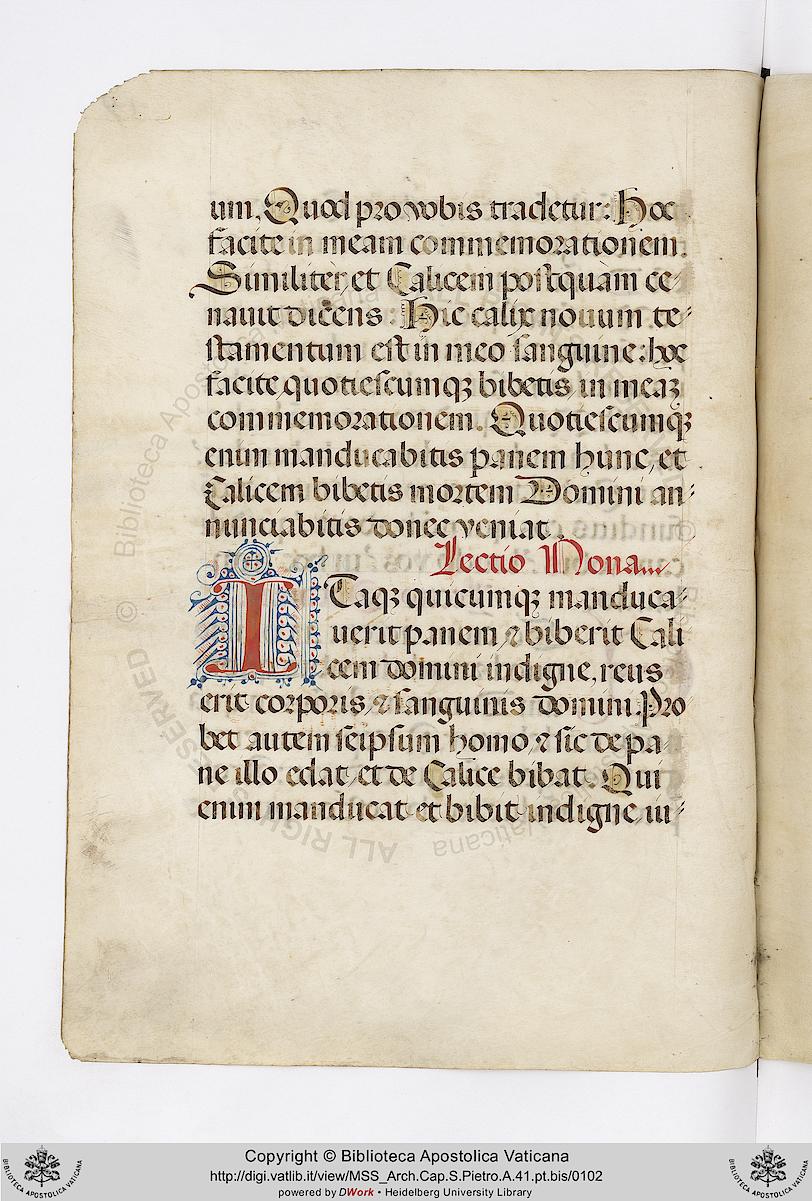 um. Quod pro vobis tradetur: Hoc
facite in meam commemorationem.
Similiter, et Calicem postquam ce⸗
navit dicens: Hic calix novum te⸗
stamentum est in meo sanguine: hoc
facite, quotiescumqꝫ bibetis, in meaꝫ
commemorationem. Quotiescumqꝫ
enim manducabitis panem hunc, et
Calicem bibetis mortem Domini an⸗
nunciabitis donec veniat.
Lectio Nona
ITaqꝫ quicumqꝫ manduca⸗
uerit panem ⁊ biberit Cali
cem domini indigne, reus
erit corporis, ⁊ sanguinis domini. Pro⸗
bet autem seipsum homo, ⁊ sic de pa⸗
ne illo edat, et de Calice bibat. Qui
enim manducat et bibit indigne iu⸗
© Biblioteca Apostolica Vaticana
ALL RIGHTS RESERVED
Copyright © Biblioteca Apostolica Vaticana
http://digi.vatlib.it/view/MSS_Arch.Cap.S.Pietro.A.41.pt.bis/0102
powered by DWork • Heidelberg University Library
BIBLIOTECA APOSTOLICA VATICANA
BIBLIOTECA APOSTOLICA VATICANA